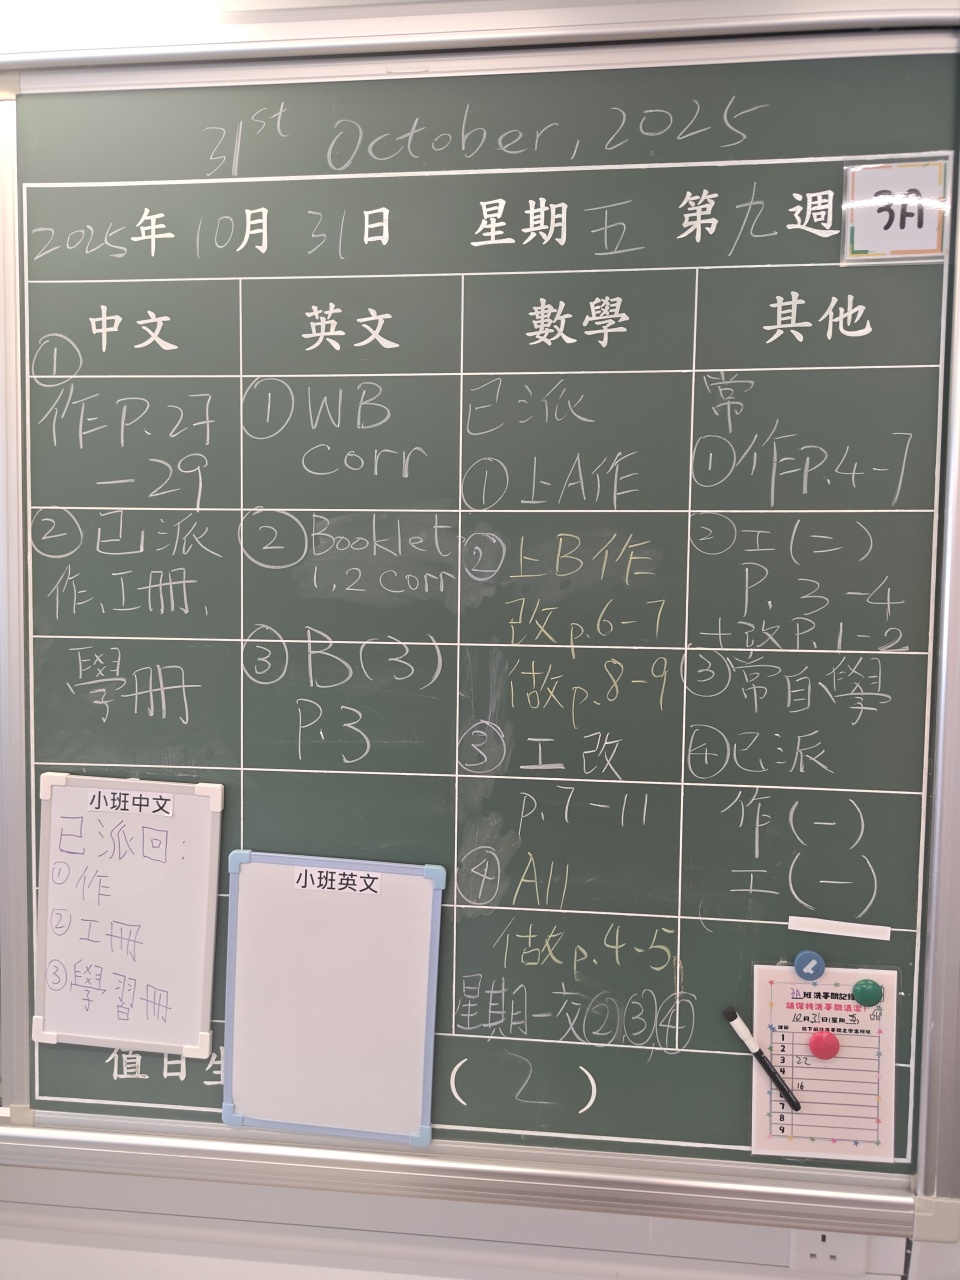 31st October, 2025
2025年 10月 31日 星期五 第九週
3A
中文
①
作P.27
-29
②已派
作、工冊、
學冊
英文
①WB
corr
②Booklet
1,2 corr
③B(3)
P.3
數學
已派
①上A作
②上B作
改p.6-7
做p.8-9
③工改
p.7-11
④A11
做p.4-5
星期一交②③④
其他
常
①作P.4-7
②工(二)
P.3-4
+改P.1-2
③常自學
④已派
作(一)
工(一)
小班中文
已派回:
①作
②工冊
③學習冊
小班英文
值日生
(2)
3A班洗手間記錄
請保持洗手間清潔!
10月31日(星期五)
1
2
3 22
4
16
7
8
9